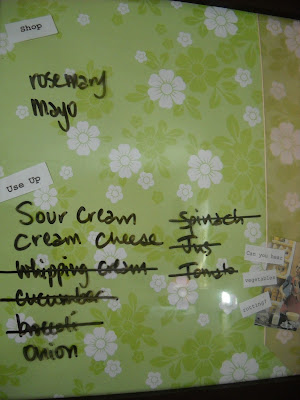 Shop
rosemary
mayo
Use Up
Sour Cream
Cream Cheese
Whipping cream
cucumber
brocoli
onion
Spinach
Tomato
Can you hear
vegetables
rotting?